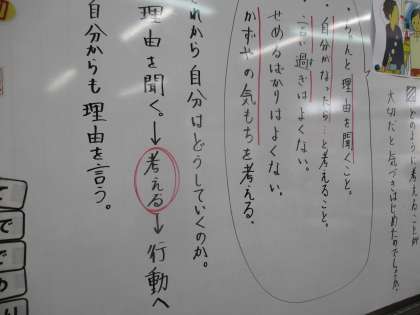 どのような考えることが
大切だと気づきはじめたのでしょうか。
・ちゃんと理由を聞くこと。
・自分がなったら…と考えること。
・言い過ぎはよくない。
せめるばかりはよくない。
かずやの気もちを考える。
これから自分はどうしていくのか。
理由を聞く。→考える→行動へ
自分からも理由を言う。